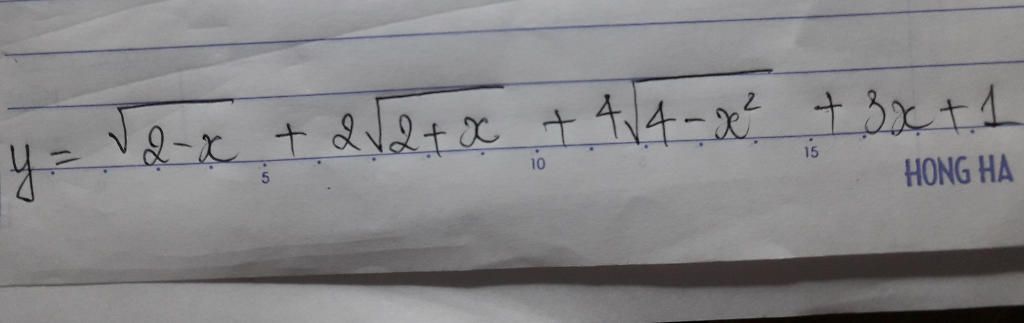 y = √2-x + 2√2+x + 4√4-x² + 3x + 1
5 10 15
HONG HA